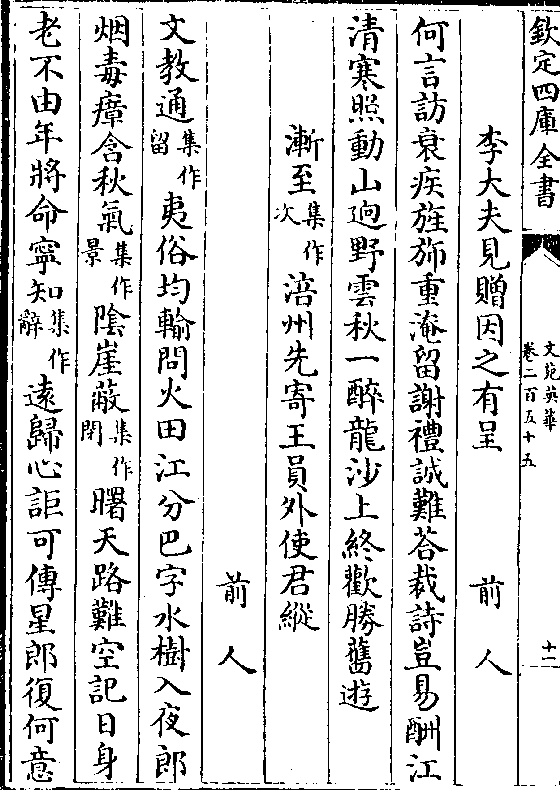 欽定四庫全書
文苑英華
卷二百五十五
十一
李大夫見贈因之有呈
前人
何言訪衰疾旌斾重淹留謝禮誠難荅裁詩豈易酬江
清寒照動山逈野雲秋一醉龍沙上終歡勝舊遊
漸至集作次涪州先寄王員外使君縱
前人
文教通集作留夷俗均輸問火田江分巴字水樹入夜郎
烟毒瘴含秋氣集作景陰崖蔽集作閉曙天路難空記日身
老不由年將命寧知集作辭遠歸心詎可傳星郎復何意